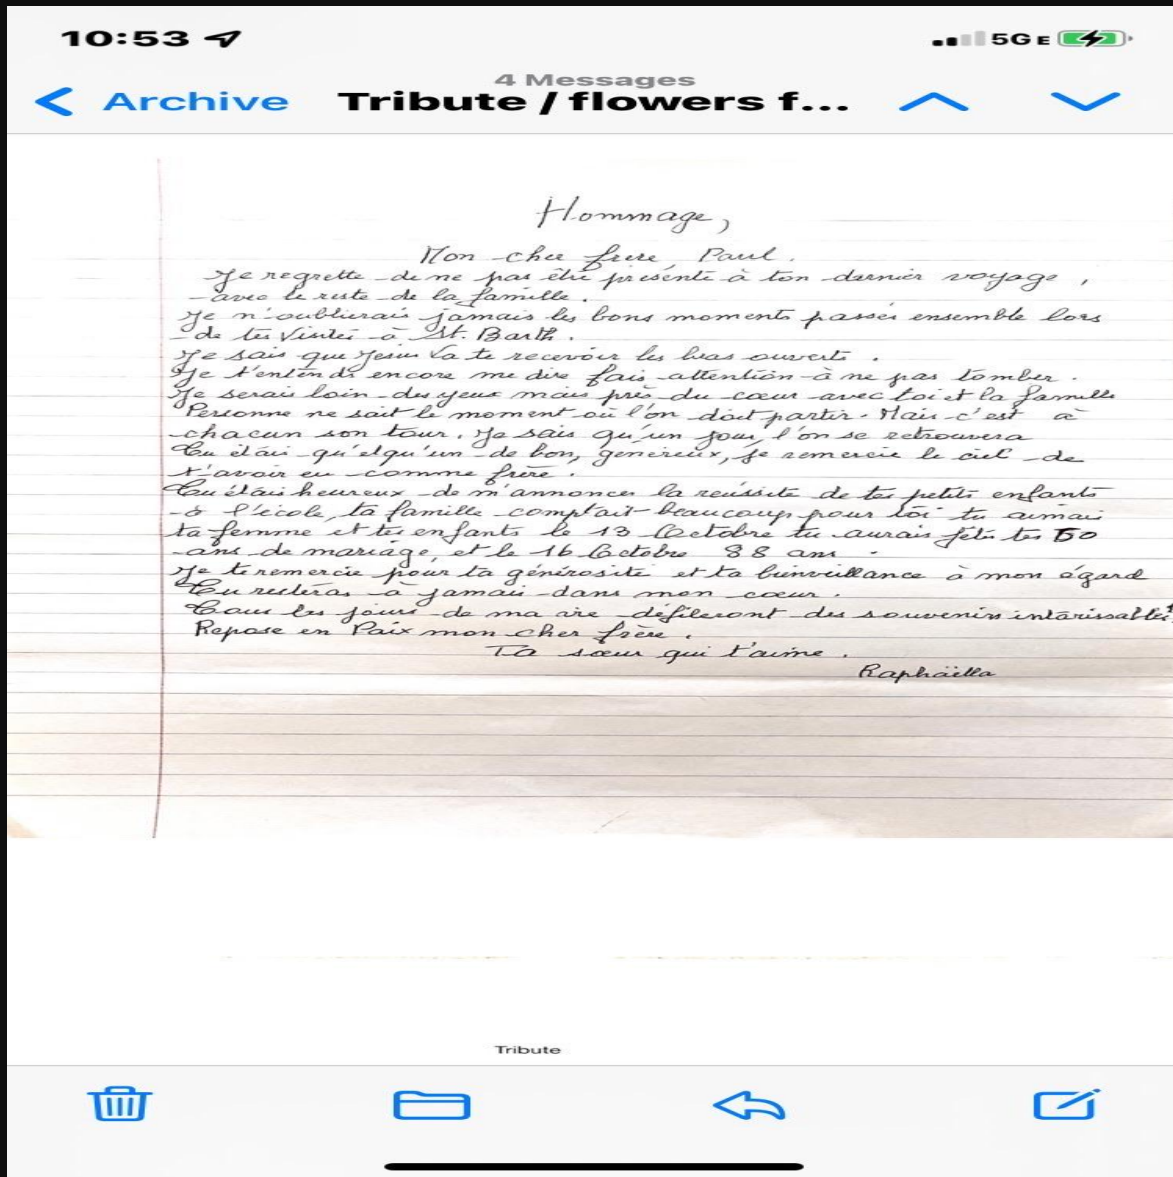 10:53
5G E
4 Messages
Archive
Tribute / flowers f...
Hommage,
Mon cher frère, Paul.
Je regrette de ne pas être présente à ton dernier voyage,
avec le reste de la famille.
Je n'oublierais jamais les bons moments passés ensemble lors
de tes visites à St. Barth.
Je sais que Jesus va te recevoir les bras ouverts.
Je t'entends encore me dire fais attention à ne pas tomber.
Je serais loin des yeux mais près du cœur avec toi et la famille
Personne ne sait le moment où l'on doit partir. Mais c'est à
chacun son tour. Je sais qu'un jour, l'on se retrouvera
Tu étais qu'elqu'un de bon, genereux, je remercie le ciel de
t'avoir eu comme frère.
Tu étais heureux de m'annoncer la réussite de tes petits enfants
à l'école, ta famille comptait beaucoup pour toi tu aimais
ta femme et tes enfants le 13 Octobre tu aurais fêté tes 50
ans de mariage, et le 16 Octobre 88 ans.
Je te remercie pour ta générosité et ta bienveillance à mon égard
Tu resteras à jamais dans mon cœur.
Tous les jours de ma vie défileront des souvenirs intarissables
Repose en Paix mon cher frère.
Ta sœur qui t'aime.
Raphaëlla
Tribute